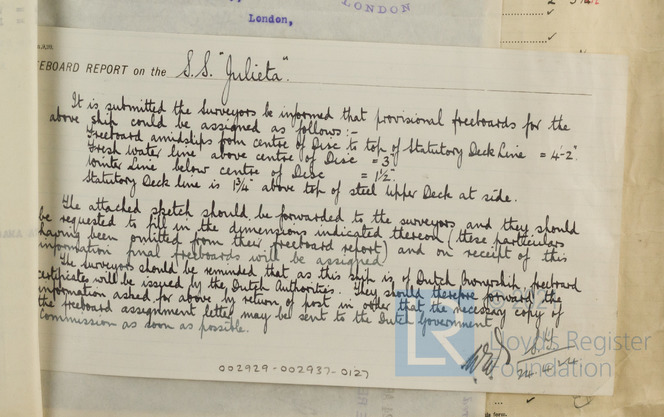 LONDON
London,
EEBOARD REPORT on the S.S. "Julieta".
It is submitted the Surveyors be informed that provisional freeboards for the
above ship could be assigned as follows:-
Freeboard amidships from centre of Disc to top of Statutory Deck Line = 4'-2".
Fresh water line above centre of Disc = 3"
Winter Line below centre of Disc = 1½"
Statutory Deck line is 1¾" above top of steel Upper Deck at side.
The attached sketch should be forwarded to the surveyors and they should
be requested to fill in the dimensions indicated thereon (these particulars
having been omitted from their freeboard report) and on receipt of this
information final freeboards will be assigned.
The Surveyors should be reminded that as this ship is of Dutch Ownership, freeboard
certificates will be issued by the Dutch Authorities. They should therefore forward the
information asked for above by return of post in order that the necessary copy of
the freeboard assignment letter may be sent to the Dutch Government
Commission as soon as possible.
LR
Lloyd's Register
Foundation
002929-002937-0127